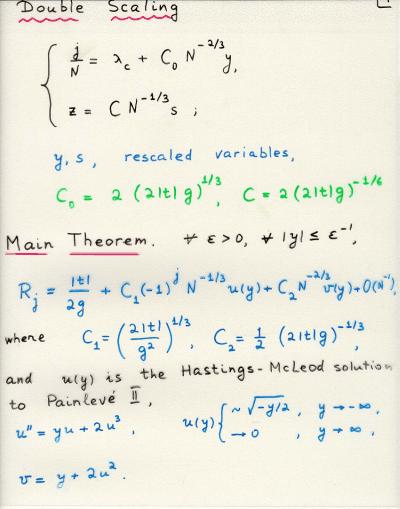 Double Scaling
j/N = λ_c + C_0 N^{-2/3} y,
z = C N^{-1/3} s ;
y, s, rescaled variables,
C_0 = 2 (2|t| g)^{1/3}, C = 2 (2|t| g)^{-1/6}
Main Theorem. ∀ ε > 0, ∀ |y| ≤ ε^{-1},
R_j = |t|/2g + C_1 (-1)^j N^{-1/3} u(y) + C_2 N^{-2/3} v(y) + O(N^{-1}),
where C_1 = (2|t|/g^2)^{1/3}, C_2 = 1/2 (2|t|g)^{-1/3},
and u(y) is the Hastings-McLeod solution
to Painlevé II,
u'' = yu + 2u^3, u(y) { ~ √(-y/2), y → -∞,
→ 0, y → ∞,
v = y + 2u^2.